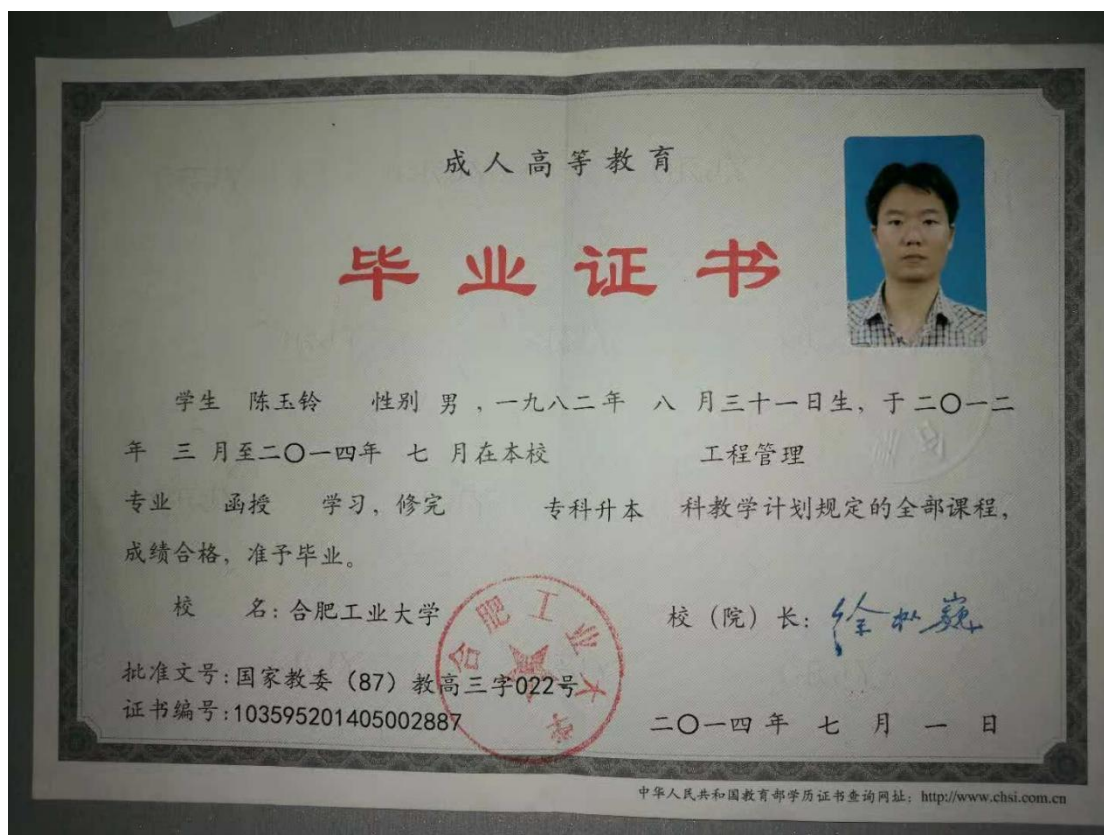 成人高等教育
毕业证书
学生 陈玉铃 性别 男 ，一九八二年 八 月三十一日生，于二〇一二
年 三 月至二〇一四年 七 月在本校 工程管理
专业 函授 学习，修完 专科升本 科教学计划规定的全部课程，
成绩合格，准予毕业。
校 名：合肥工业大学
校（院）长：徐枞巍
合肥工业大学
批准文号：国家教委（87）教高三字022号
证书编号：103595201405002887
二〇一四年 七 月 一 日
中华人民共和国教育部学历证书查询网址：http://www.chsi.com.cn